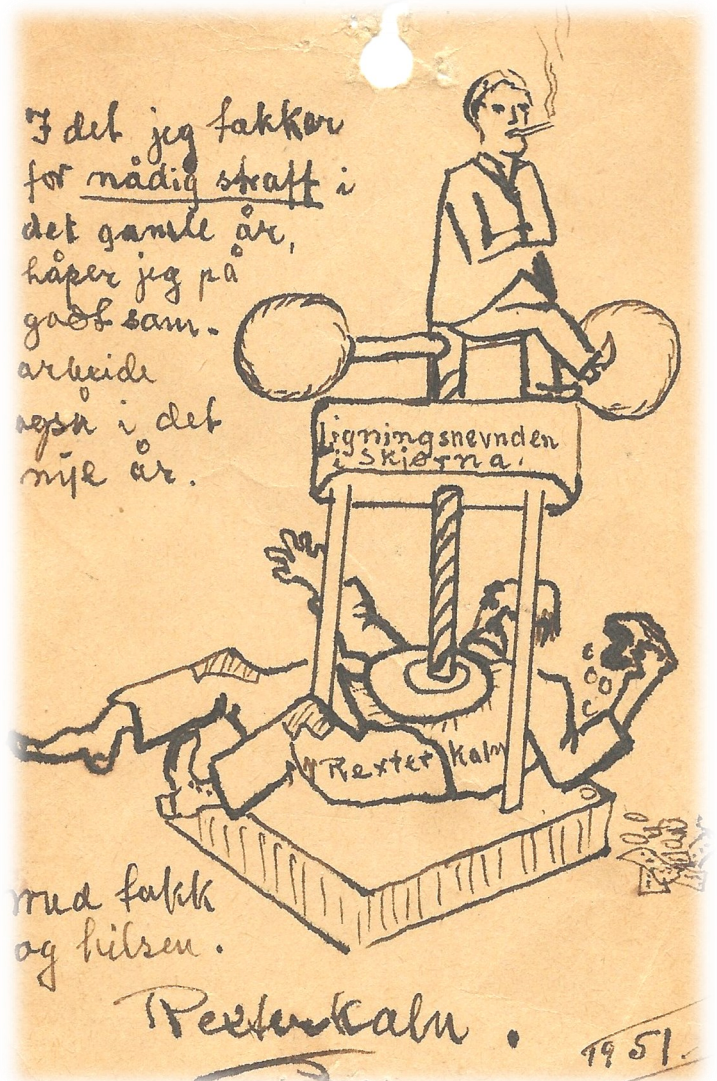 I det jeg takker
for nådig straff i
det gamle år,
håper jeg på
godt sam-
arbeide
også i det
nye år.
Ligningsnevnden
i Skjerna.
Rexter kaln
med takk
og hilsen.
Rexterkaln.
1951.